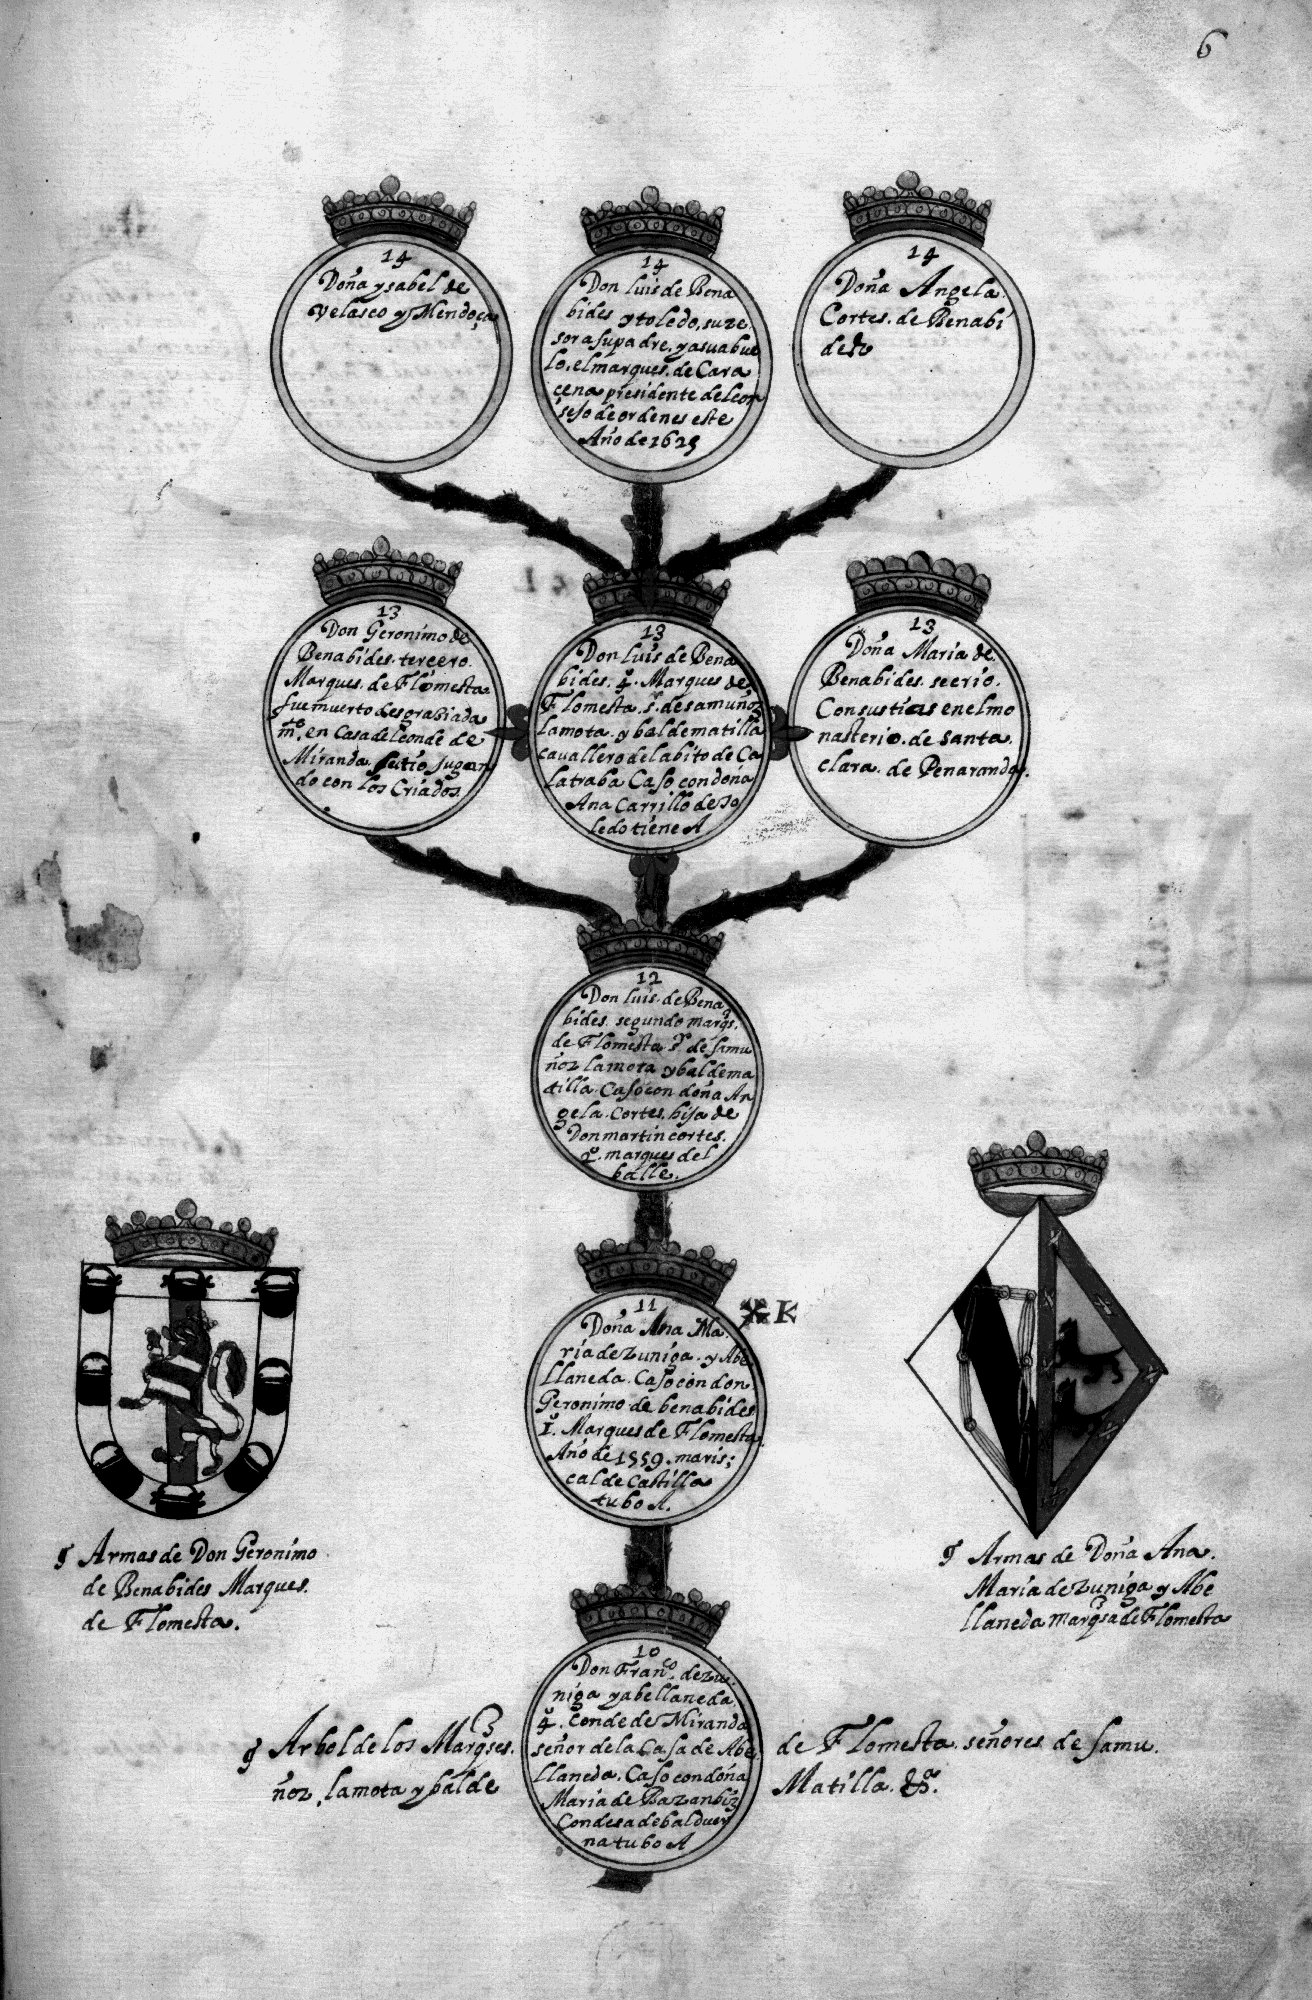 6
14
Doña ysabel de
Velasco y Mendoça
14
Don luis de Bena
bides y toledo, suze
sor a su padre, y a su abue
lo, el marques de Cara
cena presidente del con
sejo de ordenes este
Año de 1625
14
Doña Angela
Cortes de Benabi
des
13
Don Geronimo de
Benabides tercero
Marques de Flomesta
fue muerto desgrasiada
mte. en Casa del conde de
Miranda su tio jugan
do con los Criados
13
Don luis de Bena
bides. 4º. Marques de
Flomesta sr. de samuñoz
lamota y baldematilla
cavallero del abito de Ca
latraba Caso con doña
Ana Carrillo de To
ledo tiene A
13
Doña Maria de
Benabides se crio
Con sus tias en el mo
nasterio de santa
clara de Penaranda
12
Don luis de Bena
bides segundo marqs.
de Flomesta sr de samu
ñoz lamota y baldema
tilla Caso con doña An
gela Cortes hija de
Don martin cortes
2º. marques del
balle.
11
Doña Ana Ma
ria de Zuniga y Abe
llaneda Caso con don
Geronimo de benabides
1º. Marques de Flomesta
Año de 1559. maris
cal de Castilla
tubo A.
K
¶ Armas de Don Geronimo
de Benabides Marques
de Flomesta.
¶ Armas de Doña Ana
Maria de Zuniga y Abe
llaneda marqsa de Flomesta
10
Don Franco. de zu
niga y abellaneda
4º. Conde de Miranda
señor de la Casa de Abe
llaneda. Caso con doña
Maria de Bazan biz
Condesa de balduer
na tubo A
¶ Arbol de los Marqses. de Flomesta señores de samu
ñoz, lamota y balde Matilla. &a.